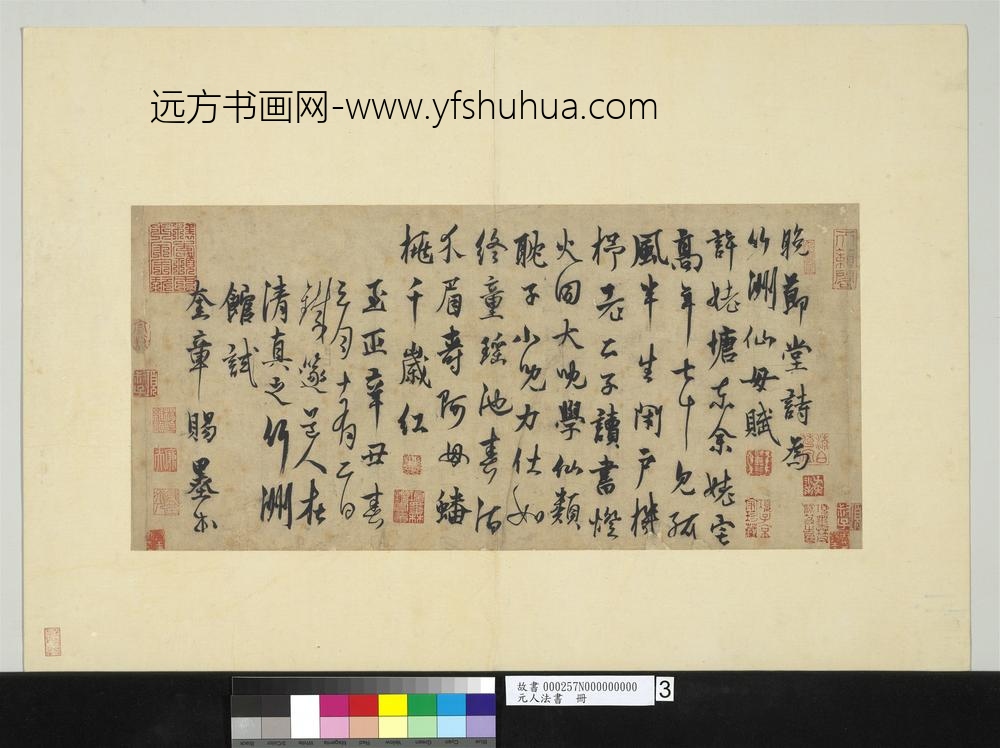 远方书画网-www.yfshuhua.com
晚節堂詩為
竹洲仙母賦
許姥塘東余姥宅
高年七十見孤
風半生閉戶機
杼老二子讀書燈
火同大兒學仙類
耽子小兒力仕如
終童瑤池春酒
介眉壽阿母蟠
桃千歲紅
至正辛丑春
三月十有二日
鐵篆道人在
清真之竹洲
館試
奎章賜墨書
故書 000257N000000000
元人法書 冊
3